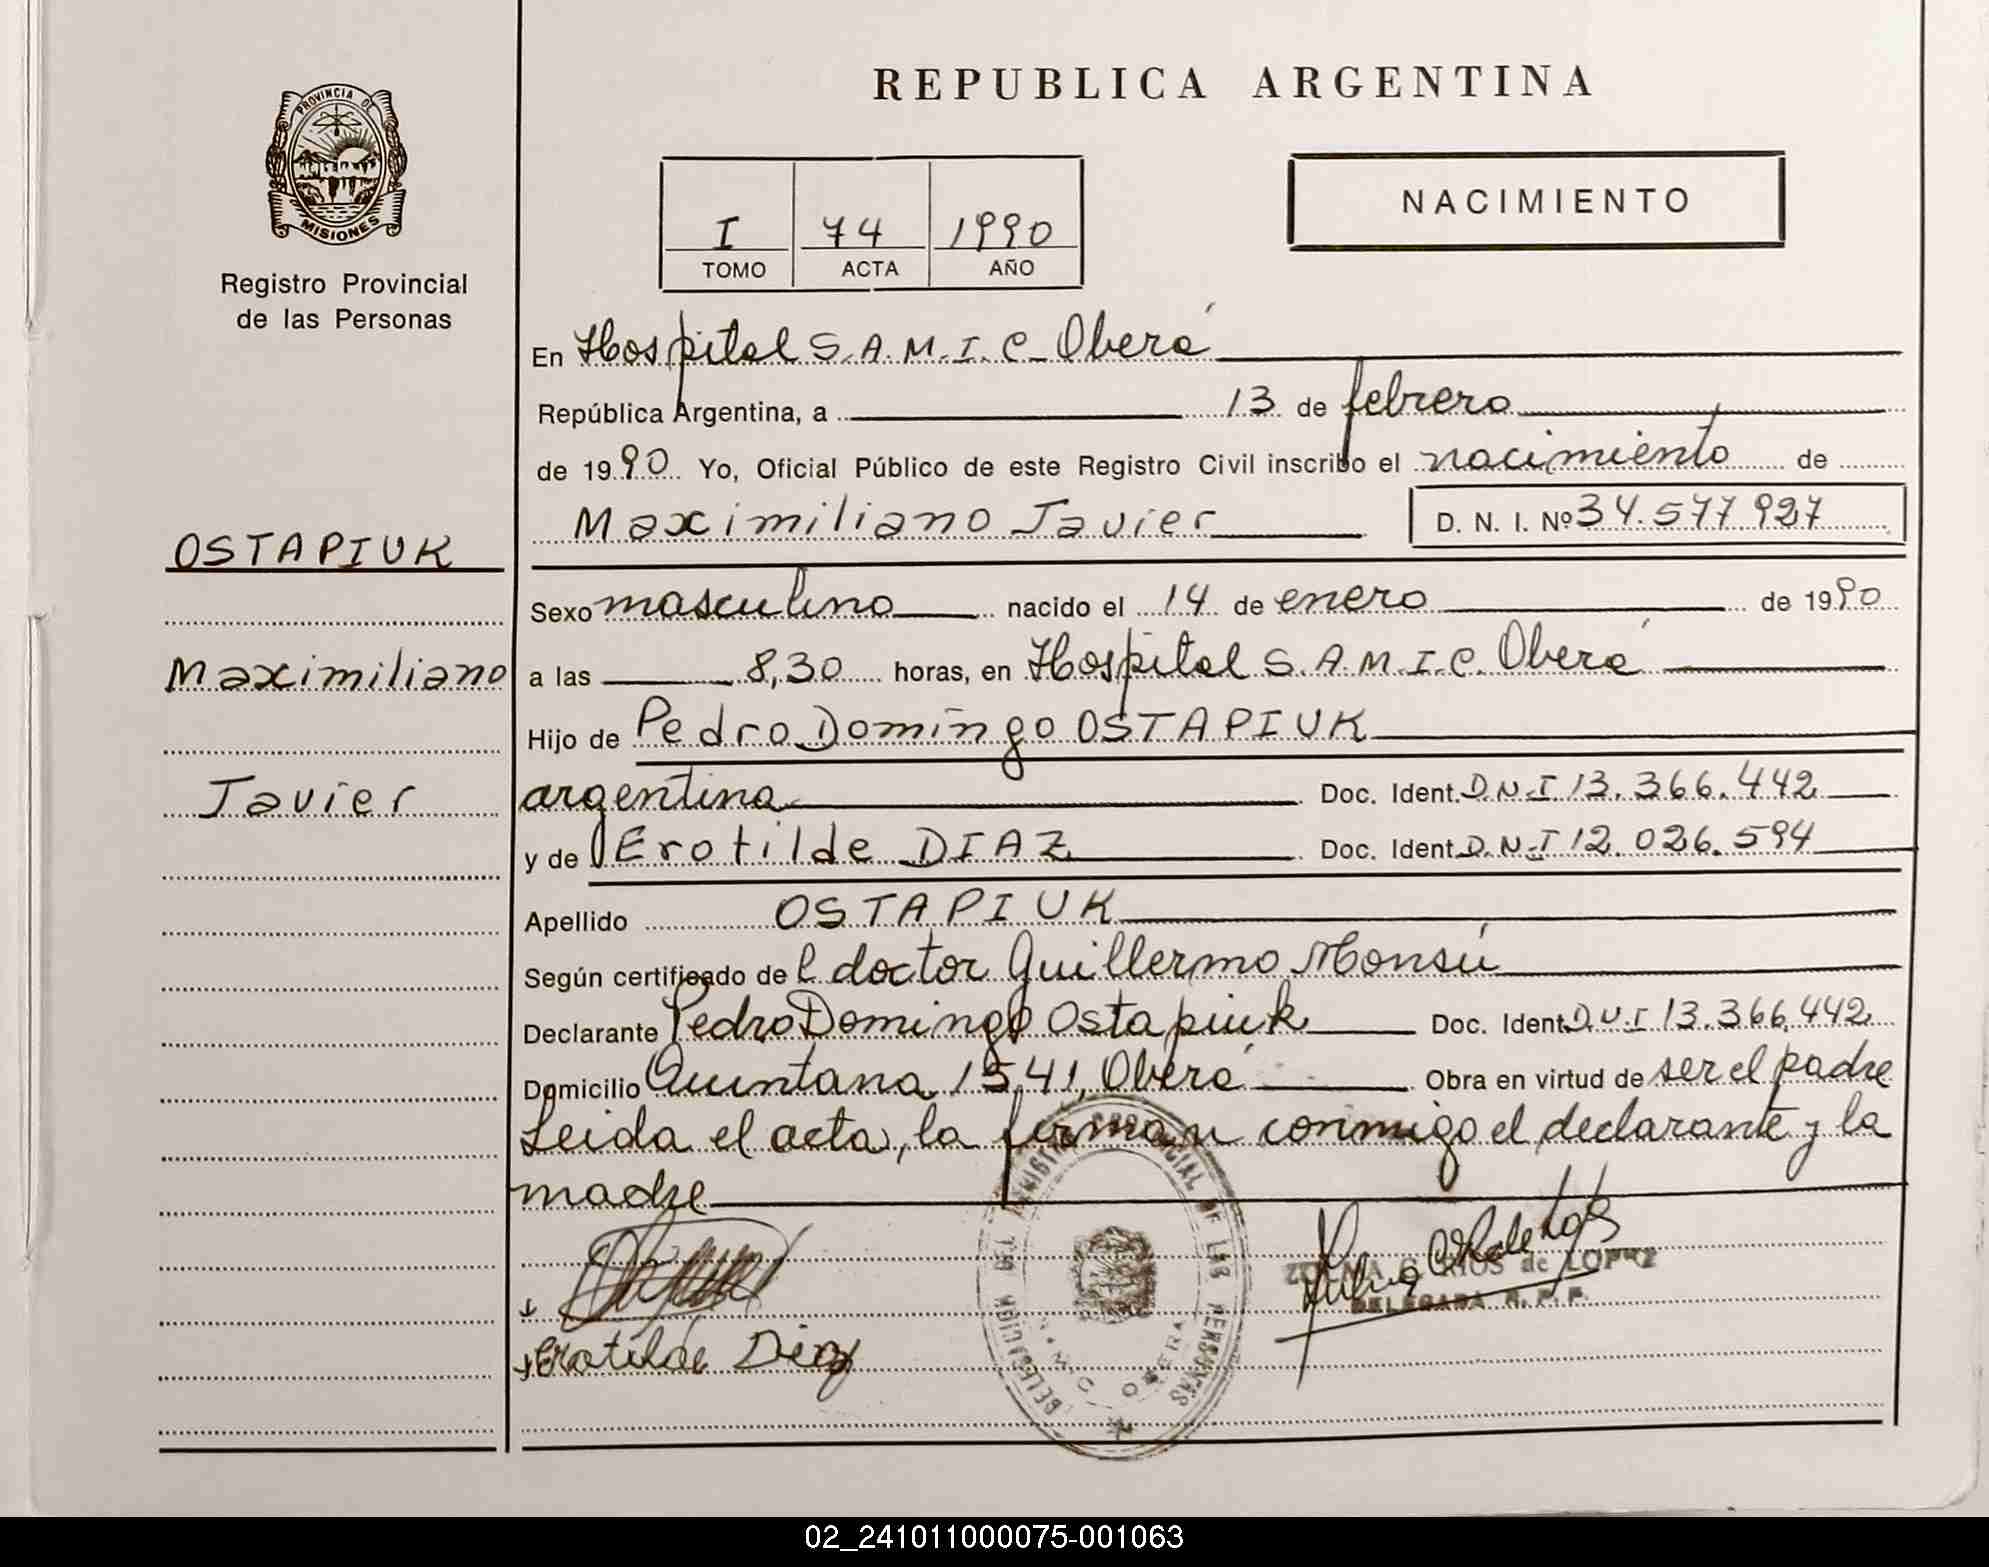 REPUBLICA ARGENTINA
PROVINCIA DE
MISIONES
Registro Provincial
de las Personas
NACIMIENTO
I 74 1990
TOMO ACTA AÑO
En Hospital S.A.M.I.C. Oberá
República Argentina, a 13 de febrero
de 1990 Yo, Oficial Público de este Registro Civil inscribo el nacimiento de
Maximiliano Javier D. N. I. Nº 34.577927
OSTAPIUK
Maximiliano
Javier
Sexo masculino nacido el 14 de enero de 1990
a las 8,30 horas, en Hospital S.A.M.I.C. Oberá
Hijo de Pedro Domingo OSTAPIUK
argentina Doc. Ident. D.N.I 13.366.442
y de Erotilde DIAZ Doc. Ident. D.N.I 12.026.594
Apellido OSTAPIUK
Según certificado de l doctor Guillermo Monsú
Declarante Pedro Domingo Ostapiuk Doc. Ident. D.N.I 13.366.442
Domicilio Quintana 1541, Oberá Obra en virtud de ser el padre
Leida el acta, la firman conmigo el declarante y la
madre
REGISTRO PROVINCIAL DE LAS PERSONAS
DELEGACION
OBERA
de LOPEZ
DELEGADA R. P. P.
Erotilde Diaz
02_241011000075-001063